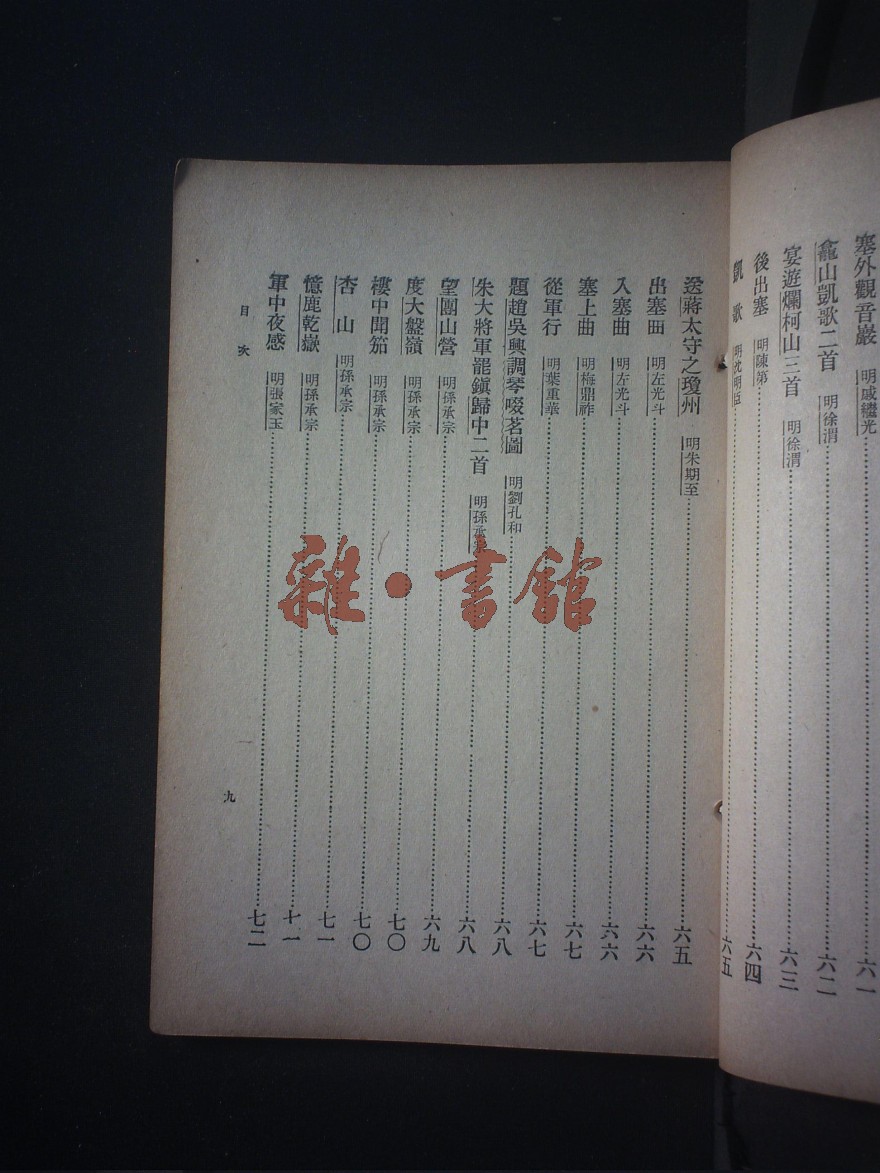 塞外觀音巖 明戚繼光 六一
龕山凱歌二首 明徐渭 六二
宴遊爛柯山三首 明徐渭 六三
後出塞 明陳第 六四
凱歌 明沈明臣 六五
送蔣太守之瓊州 明朱期至 六五
出塞曲 明左光斗 六六
入塞曲 明左光斗 六六
塞上曲 明梅鼎祚 六七
從軍行 明葉重華 六七
題趙吳興調琴啜茗圖 明劉孔和 六八
朱大將軍罷鎭歸中二首 明孫承宗 六八
望團山營 明孫承宗 六九
度大盤嶺 明孫承宗 七〇
樓中聞笳 明孫承宗 七〇
杏山 明孫承宗 七一
憶鹿乾嶽 明孫承宗 七一
軍中夜感 明張家玉 七二
目次
九
雜·書館